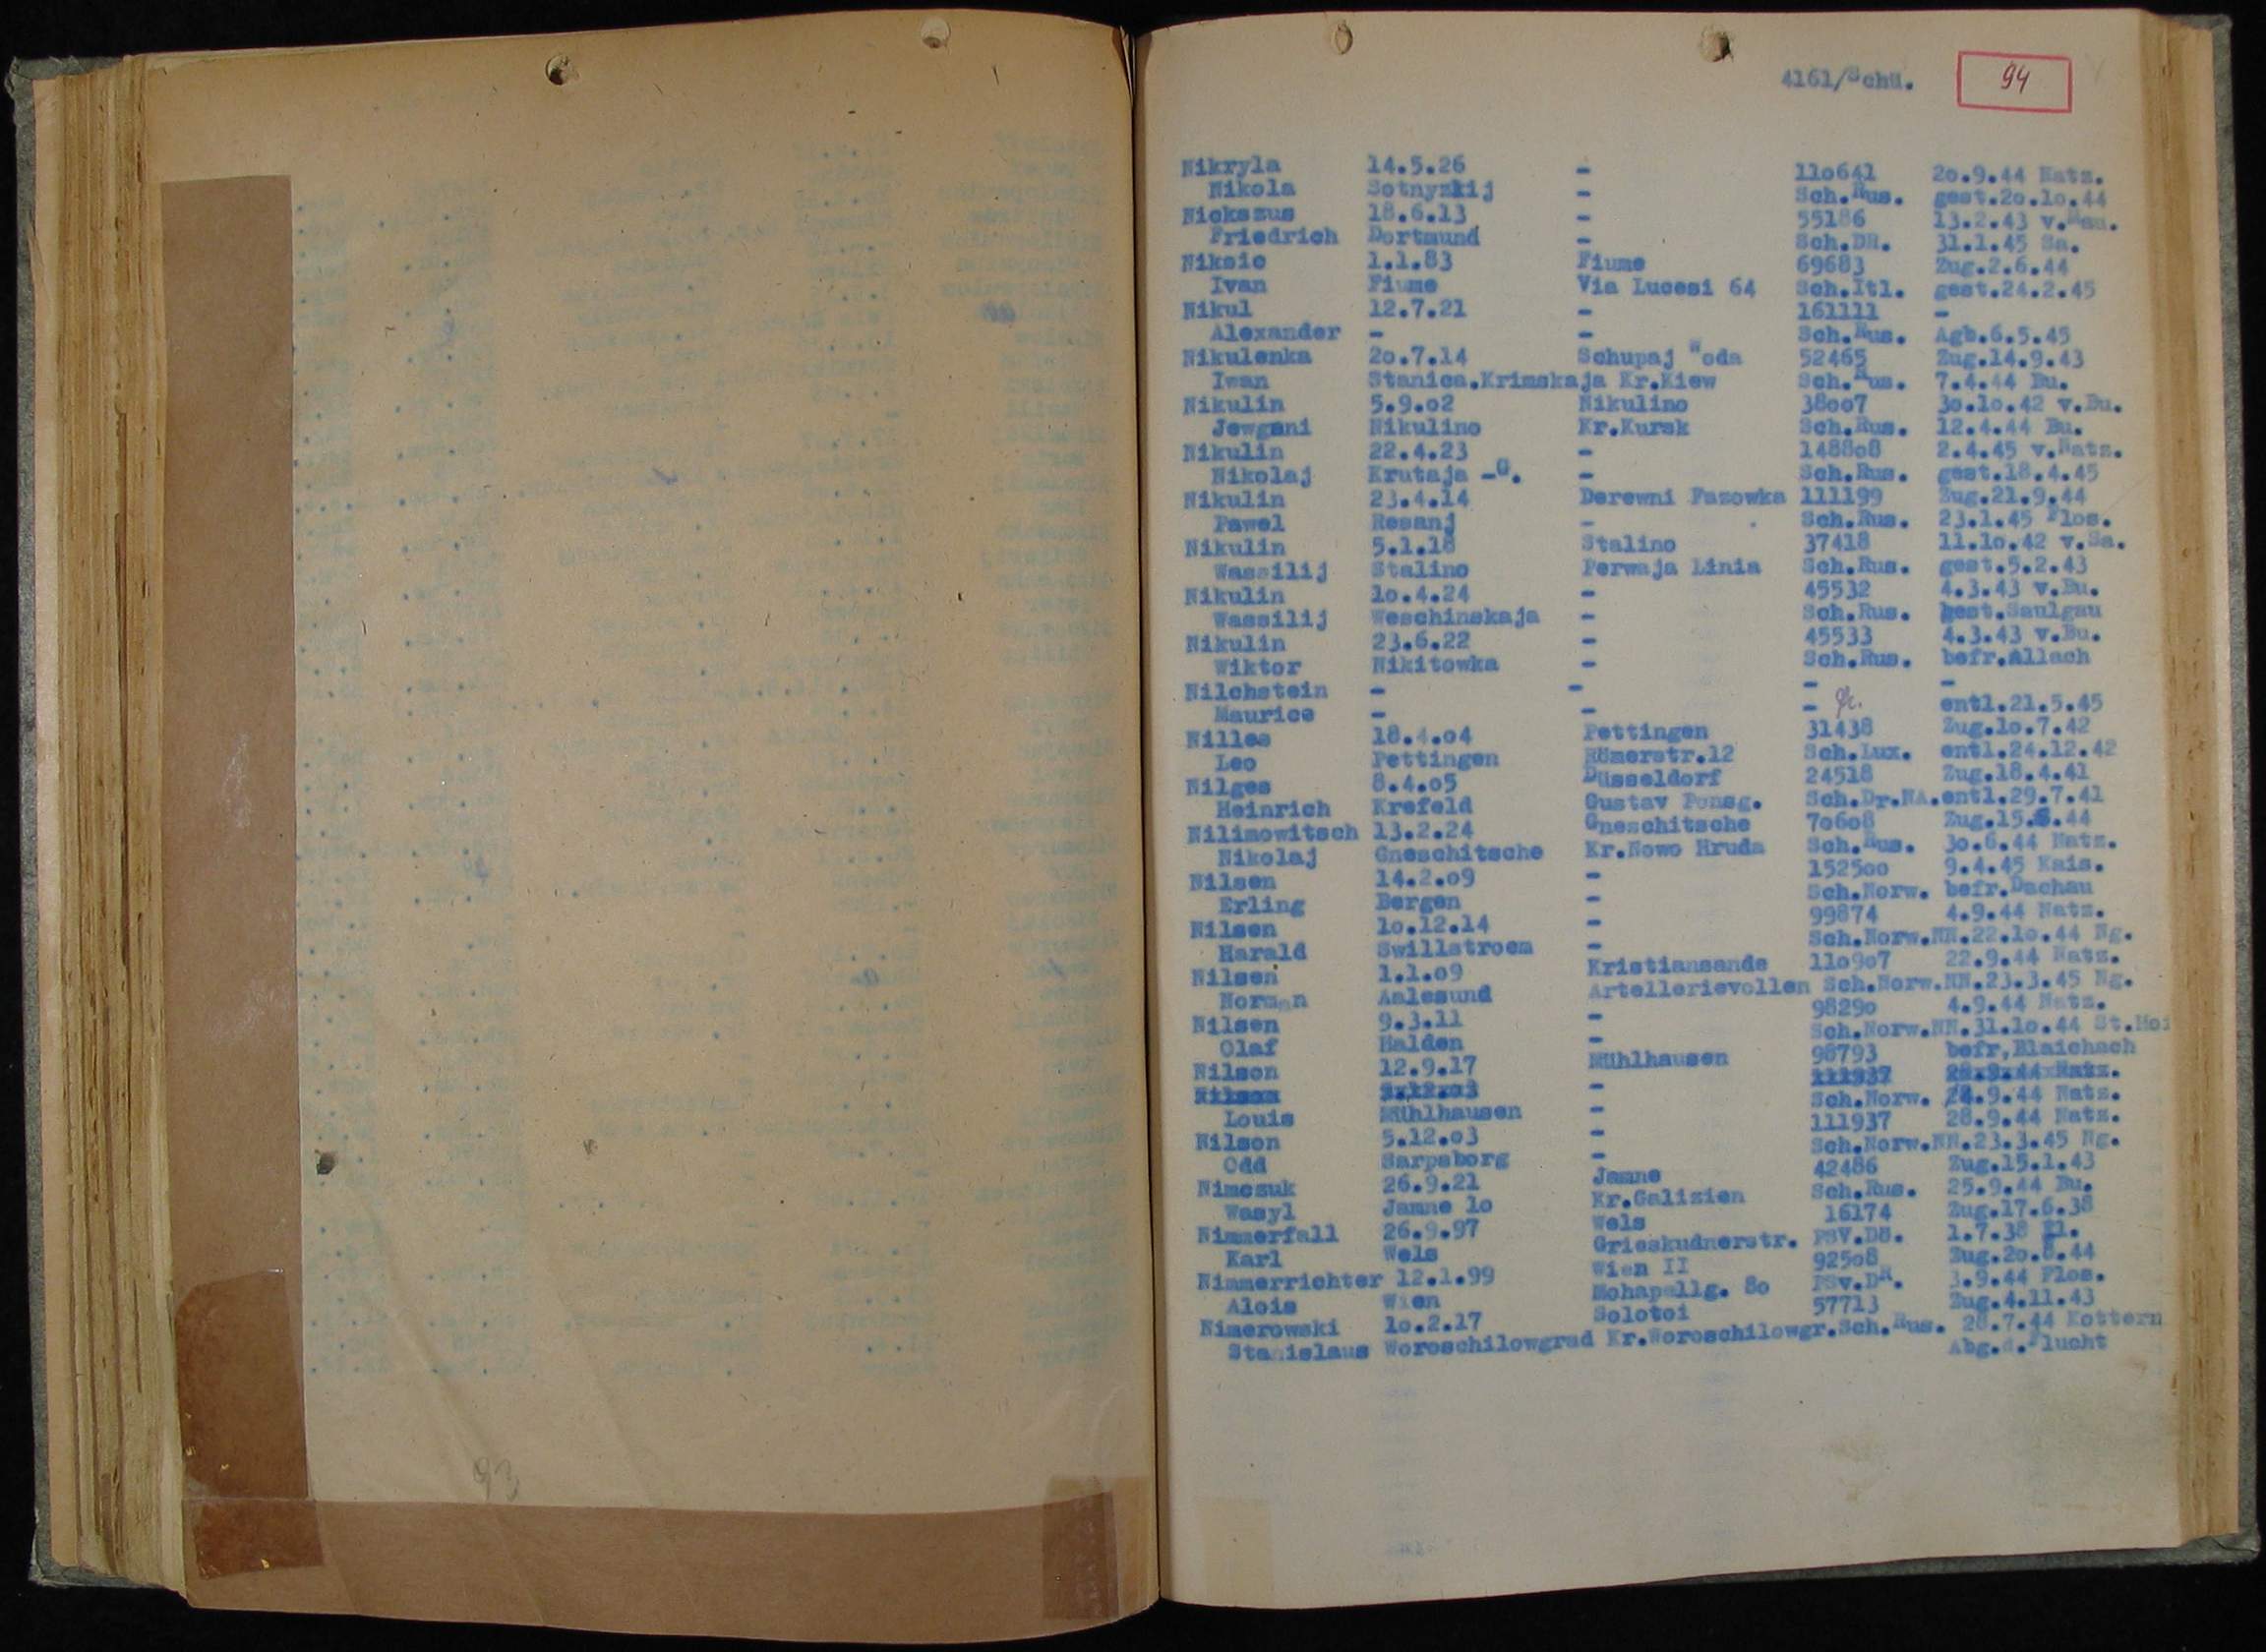 93
4161/Schü.
94
Nikryla 14.5.26 - 110641 20.9.44 Natz.
Nikola Sotnyzkij - Sch.Rus. gest.20.10.44
Nickszus 18.6.13 - 55186 13.2.43 v.Nau.
Friedrich Dortmund - Sch.DR. 31.1.45 Sa.
Niksic 1.1.83 Fiume 69683 Zug.2.6.44
Ivan Fiume Via Lucesi 64 Sch.Itl. gest.24.2.45
Nikul 12.7.21 - 161111 -
Alexander - - Sch.Rus. Agb.6.5.45
Nikulenka 20.7.14 Schupaj Woda 52465 Zug.14.9.43
Iwan Stanica.Krimskaja Kr.Kiew Sch.Rus. 7.4.44 Bu.
Nikulin 5.9.02 Nikulino 38007 30.10.42 v.Bu.
Jewgeni Nikulino Kr.Kursk Sch.Rus. 12.4.44 Bu.
Nikulin 22.4.23 - 148808 2.4.45 v.Natz.
Nikolaj Krutaja -G. - Sch.Rus. gest.18.4.45
Nikulin 23.4.14 Derewni Fasowka 111199 Zug.21.9.44
Pawel Resanj - Sch.Rus. 23.1.45 Flos.
Nikulin 5.1.18 Stalino 37418 11.10.42 v.Sa.
Wassilij Stalino Perwaja Linia Sch.Rus. gest.5.2.43
Nikulin 10.4.24 - 45532 4.3.43 v.Bu.
Wassilij Weschinskaja - Sch.Rus. best.Saulgau
Nikulin 23.6.22 - 45533 4.3.43 v.Bu.
Wiktor Nikitowka - Sch.Rus. befr.Allach
Nilchstein - - - -
Maurice - - - entl.21.5.45
Nilles 18.4.04 Pettingen 31438 Zug.10.7.42
Leo Pettingen Römerstr.12 Sch.Lux. entl.24.12.42
Nilges 8.4.05 Düsseldorf 24518 Zug.18.4.41
Heinrich Krefeld Gustav Ponsg. Sch.Dr.NA.entl.29.7.41
Nilimowitsch 13.2.24 Gneschitsche 70608 Zug.15.6.44
Nikolaj Gneschitsche Kr.Nowo Hruda Sch.Rus. 30.6.44 Natz.
Nilsen 14.2.09 - 152500 9.4.45 Kais.
Erling Bergen - Sch.Norw. befr.Dachau
Nilsen 10.12.14 - 99874 4.9.44 Natz.
Harald Swillstroem - Sch.Norw.NN.22.10.44 Ng.
Nilsen 1.1.09 Kristiansande 110907 22.9.44 Natz.
Norman Aalesund Artellerievollen Sch.Norw.NN.23.3.45 Ng.
Nilsen 9.3.11 - 98290 4.9.44 Natz.
Olaf Halden - Sch.Norw.NN.31.10.44 St.Hoi
Nilson 12.9.17 Mühlhausen 98793 befr,Blaichach
Nilson 5.12.03 - 111937 28.9.44 Natz.
Louis Mühlhausen - Sch.Norw. 24.9.44 Natz.
Nilson 5.12.03 - 111937 28.9.44 Natz.
Odd Sarpsborg - Sch.Norw.NN.23.3.45 Ng.
Nimczuk 26.9.21 Jamne 42486 Zug.15.1.43
Wasyl Jamne 10 Kr.Galizien Sch.Rus. 25.9.44 Bu.
Nimmerfall 26.9.97 Wels 16174 Zug.17.6.38
Karl Wels Grieskudnerstr. PSV.DR. 1.7.38 El.
Nimmerrichter 12.1.99 Wien II 92508 Zug.20.8.44
Alois Wien Mohapellg. 80 PSv.DR. 3.9.44 Flos.
Nimerowski 10.2.17 Solotoi 57713 Zug.4.11.43
Stanislaus Woroschilowgrad Kr.Woroschilowgr.Sch.Rus. 28.7.44 Kottern
Abg.d.Flucht